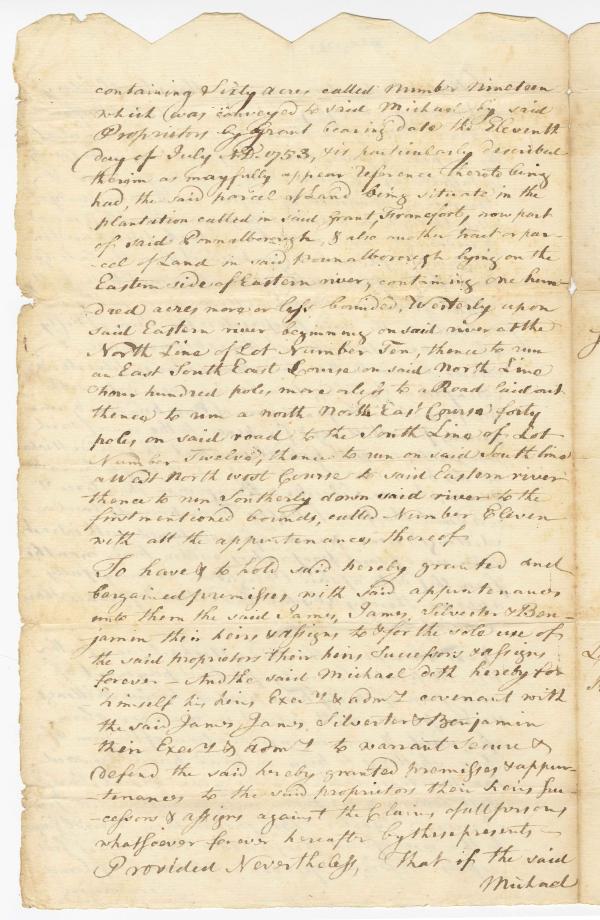 containing Sixty acres called Number Nineteen
which was conveyed to said Michael by said
Proprietors by Grant bearing date the Eleventh
day of July A.D. 1753, & is particularly described
therein as may fully appear reference thereto being
had, the said parcel of Land being situate in the
plantation called in said Grant, Francfort, now part
of said Pownalborough, & also another tract or par-
-cel of Land in said Pownalborough lying on the
Eastern side of Eastern river, containing one hun-
dred acres more or less bounded, Westerly upon
said Eastern river beginning on said river at the
North Line of Lot Number Ten, thence to run
an East South East Course on said North Line
four hundred poles more or less to a Road laid out
thence to run a north North East Course forty
poles on said road to the South Line of Lot
Number Twelve, thence to run on said South line
a West North West Course to said Eastern river
thence to run Southerly down said river to the
first mentioned bounds, called Number Eleven
with all the appurtenances thereof
To have & to hold said hereby granted and
bargained premisses with said appurtenances
unto them the said James, James, Silvester & Ben-
jamin their heirs & assigns to & for the sole use of
the said proprietors their heirs Successors & assigns
forever – And the said Michael doth hereby for
himself his heirs Exec.rs & adm.rs covenant with
the said James, James, Silvester & Benjamin
their Exec.rs & adm.rs to warrant Secure &
defend the said hereby granted premisses & appur-
-tenances to the said proprietors their heirs Suc-
-cessors & assigns against the Claims of all persons
whatsoever forever hereafter by these presents –
Provided Nevertheless, That if the said
Michael